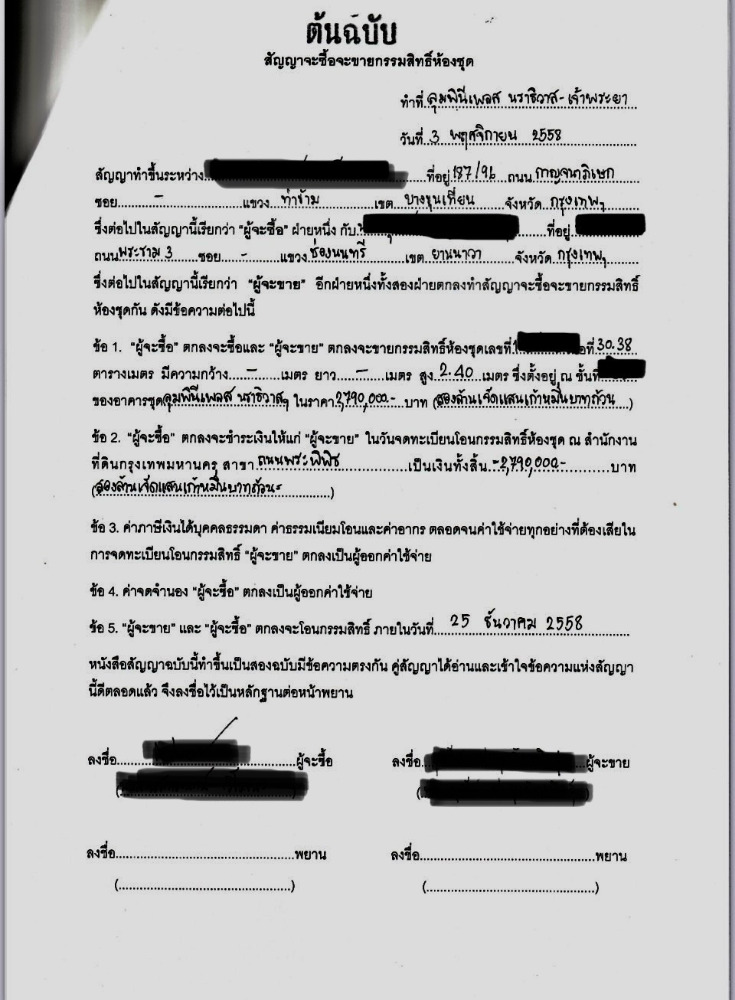 ต้นฉบับ
สัญญาจะซื้อจะขายกรรมสิทธิ์ห้องชุด
ทำที่ ลุมพินีเพลส นราธิวาส-เจ้าพระยา
วันที่ 3 พฤศจิกายน 2558
สัญญาทำขึ้นระหว่าง ที่อยู่ 187/96 ถนน กาญจนาภิเษก
ซอย - แขวง ท่าข้าม เขต บางขุนเทียน จังหวัด กรุงเทพฯ
ซึ่งต่อไปในสัญญานี้เรียกว่า "ผู้จะซื้อ" ฝ่ายหนึ่ง กับ ที่อยู่
ถนน พระราม 3 ซอย - แขวง ช่องนนทรี เขต ยานนาวา จังหวัด กรุงเทพฯ
ซึ่งต่อไปในสัญญานี้เรียกว่า "ผู้จะขาย" อีกฝ่ายหนึ่งทั้งสองฝ่ายตกลงทำสัญญาจะซื้อจะขายกรรมสิทธิ์
ห้องชุดกัน ดังมีข้อความต่อไปนี้
ข้อ 1. "ผู้จะซื้อ" ตกลงจะซื้อและ "ผู้จะขาย" ตกลงจะขายกรรมสิทธิ์ห้องชุดเลขที่ 30.38
ตารางเมตร มีความกว้าง - เมตร ยาว - เมตร สูง 2.40 เมตร ซึ่งตั้งอยู่ ณ ชั้นที่
ของอาคารชุด ลุมพินีเพลส นราธิวาสฯ ในราคา 2790,000.- บาท (สองล้านเจ็ดแสนเก้าหมื่นบาทถ้วน)
ข้อ 2. "ผู้จะซื้อ" ตกลงจะชำระเงินให้แก่ "ผู้จะขาย" ในวันจดทะเบียนโอนกรรมสิทธิ์ห้องชุด ณ สำนักงาน
ที่ดินกรุงเทพมหานคร สาขา ถนนพระพิพิธ เป็นเงินทั้งสิ้น -2,790,000- บาท
(สองล้านเจ็ดแสนเก้าหมื่นบาทถ้วน)
ข้อ 3. ค่าภาษีเงินได้บุคคลธรรมดา ค่าธรรมเนียมโอนและค่าอากร ตลอดจนค่าใช้จ่ายทุกอย่างที่ต้องเสียใน
การจดทะเบียนโอนกรรมสิทธิ์ "ผู้จะขาย" ตกลงเป็นผู้ออกค่าใช้จ่าย
ข้อ 4. ค่าจดจำนอง "ผู้จะซื้อ" ตกลงเป็นผู้ออกค่าใช้จ่าย
ข้อ 5. "ผู้จะขาย" และ "ผู้จะซื้อ" ตกลงจะโอนกรรมสิทธิ์ ภายในวันที่ 25 ธันวาคม 2558
หนังสือสัญญาฉบับนี้ทำขึ้นเป็นสองฉบับมีข้อความตรงกัน คู่สัญญาได้อ่านและเข้าใจข้อความแห่งสัญญา
นี้ดีตลอดแล้ว จึงลงชื่อไว้เป็นหลักฐานต่อหน้าพยาน
ลงชื่อ ผู้จะซื้อ ลงชื่อ ผู้จะขาย
ลงชื่อ พยาน ลงชื่อ พยาน
(........................) (........................)